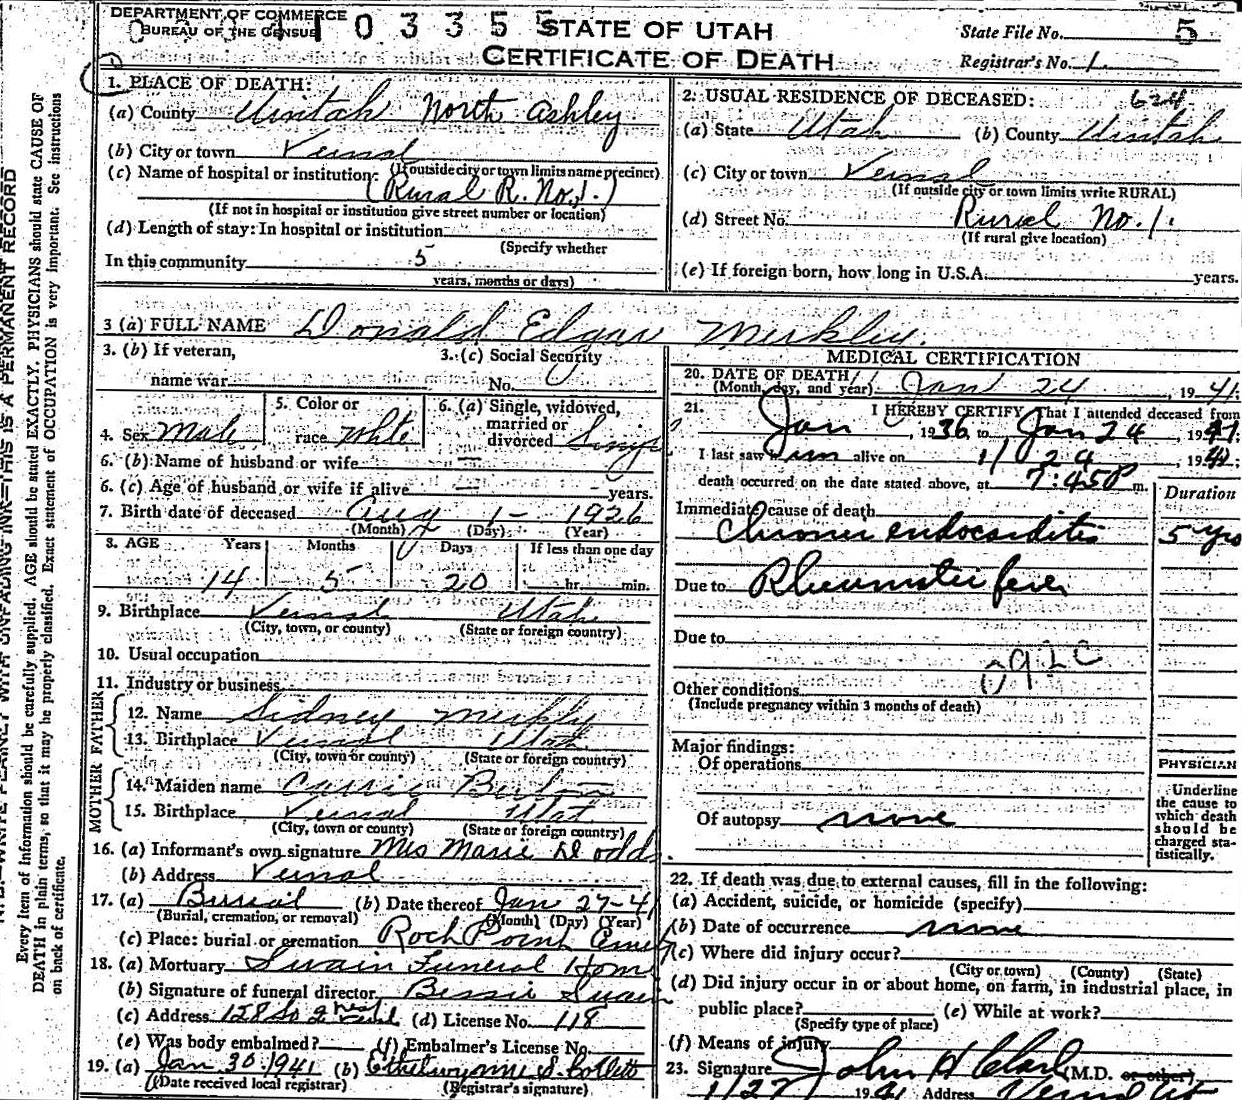 DEPARTMENT OF COMMERCE
BUREAU OF THE CENSUS
10335
STATE OF UTAH
CERTIFICATE OF DEATH
State File No. 5
Registrar's No. 1
1. PLACE OF DEATH:
(a) County Uintah North Ashley
(b) City or town Vernal
(If outside city or town limits name precinct)
(c) Name of hospital or institution:
(Rural R. No. 1.)
(If not in hospital or institution give street number or location)
(d) Length of stay: In hospital or institution
(Specify whether
In this community 5
years, months or days)
2. USUAL RESIDENCE OF DECEASED: 624
(a) State Utah (b) County Uintah
(c) City or town Vernal
(If outside city or town limits write RURAL)
(d) Street No. Rural No. 1.
(If rural give location)
(e) If foreign born, how long in U.S.A. years.
3 (a) FULL NAME Donald Edgar Merkley.
3. (b) If veteran,
name war
3. (c) Social Security
No.
4. Sex Male
5. Color or
race White
6. (a) Single, widowed,
married or
divorced Single
6. (b) Name of husband or wife —
6. (c) Age of husband or wife if alive — years.
7. Birth date of deceased Aug 1 - 1926
(Month) (Day) (Year)
8. AGE Years Months Days If less than one day
14 5 20 hr. min.
9. Birthplace Vernal Utah
(City, town, or county) (State or foreign country)
10. Usual occupation
11. Industry or business
FATHER
12. Name Sidney Merkly
13. Birthplace Vernal Utah
(City, town or county) (State or foreign country)
MOTHER
14. Maiden name Carrie
15. Birthplace Vernal Utah
(City, town or county) (State or foreign country)
16. (a) Informant's own signature Mrs Marie Dodds
(b) Address Vernal
17. (a) Burial (b) Date thereof Jan 27-41
(Burial, cremation, or removal) (Month) (Day) (Year)
(c) Place: burial or cremation Rock Point
18. (a) Mortuary Swain Funeral Home
(b) Signature of funeral director Bessie Swain
(c) Address 128 So 2nd (d) License No. 118
(e) Was body embalmed? (f) Embalmer's License No.
19. (a) Jan 30 1941 (b) Ethelwynne S. Collett
(Date received local registrar) (Registrar's signature)
MEDICAL CERTIFICATION
20. DATE OF DEATH
(Month, day, and year) Jan 24, 1941.
21. I HEREBY CERTIFY That I attended deceased from
Jan, 1936, to Jan 24, 1941.
I last saw him alive on 1/24, 1941
death occurred on the date stated above, at 7:45 P m.
Duration
Immediate cause of death
Chronic endocarditis 5 yrs
Due to Rheumatic fever
Due to
092c
Other conditions
(Include pregnancy within 3 months of death)
Major findings:
Of operations
Of autopsy none
PHYSICIAN
Underline
the cause to
which death
should be
charged sta-
tistically.
22. If death was due to external causes, fill in the following:
(a) Accident, suicide, or homicide (specify)
(b) Date of occurrence none
(c) Where did injury occur?
(City or town) (County) (State)
(d) Did injury occur in or about home, on farm, in industrial place, in
public place? (e) While at work?
(Specify type of place)
(f) Means of injury
23. Signature John H Clark (M.D. or other)
1/27 1941 Address Vernal Ut
THIS IS A PERMANENT RECORD
Every item of information should be carefully supplied. AGE should be stated EXACTLY. PHYSICIANS should state CAUSE OF
DEATH in plain terms, so that it may be properly classified. Exact statement of OCCUPATION is very important. See instructions
on back of certificate.